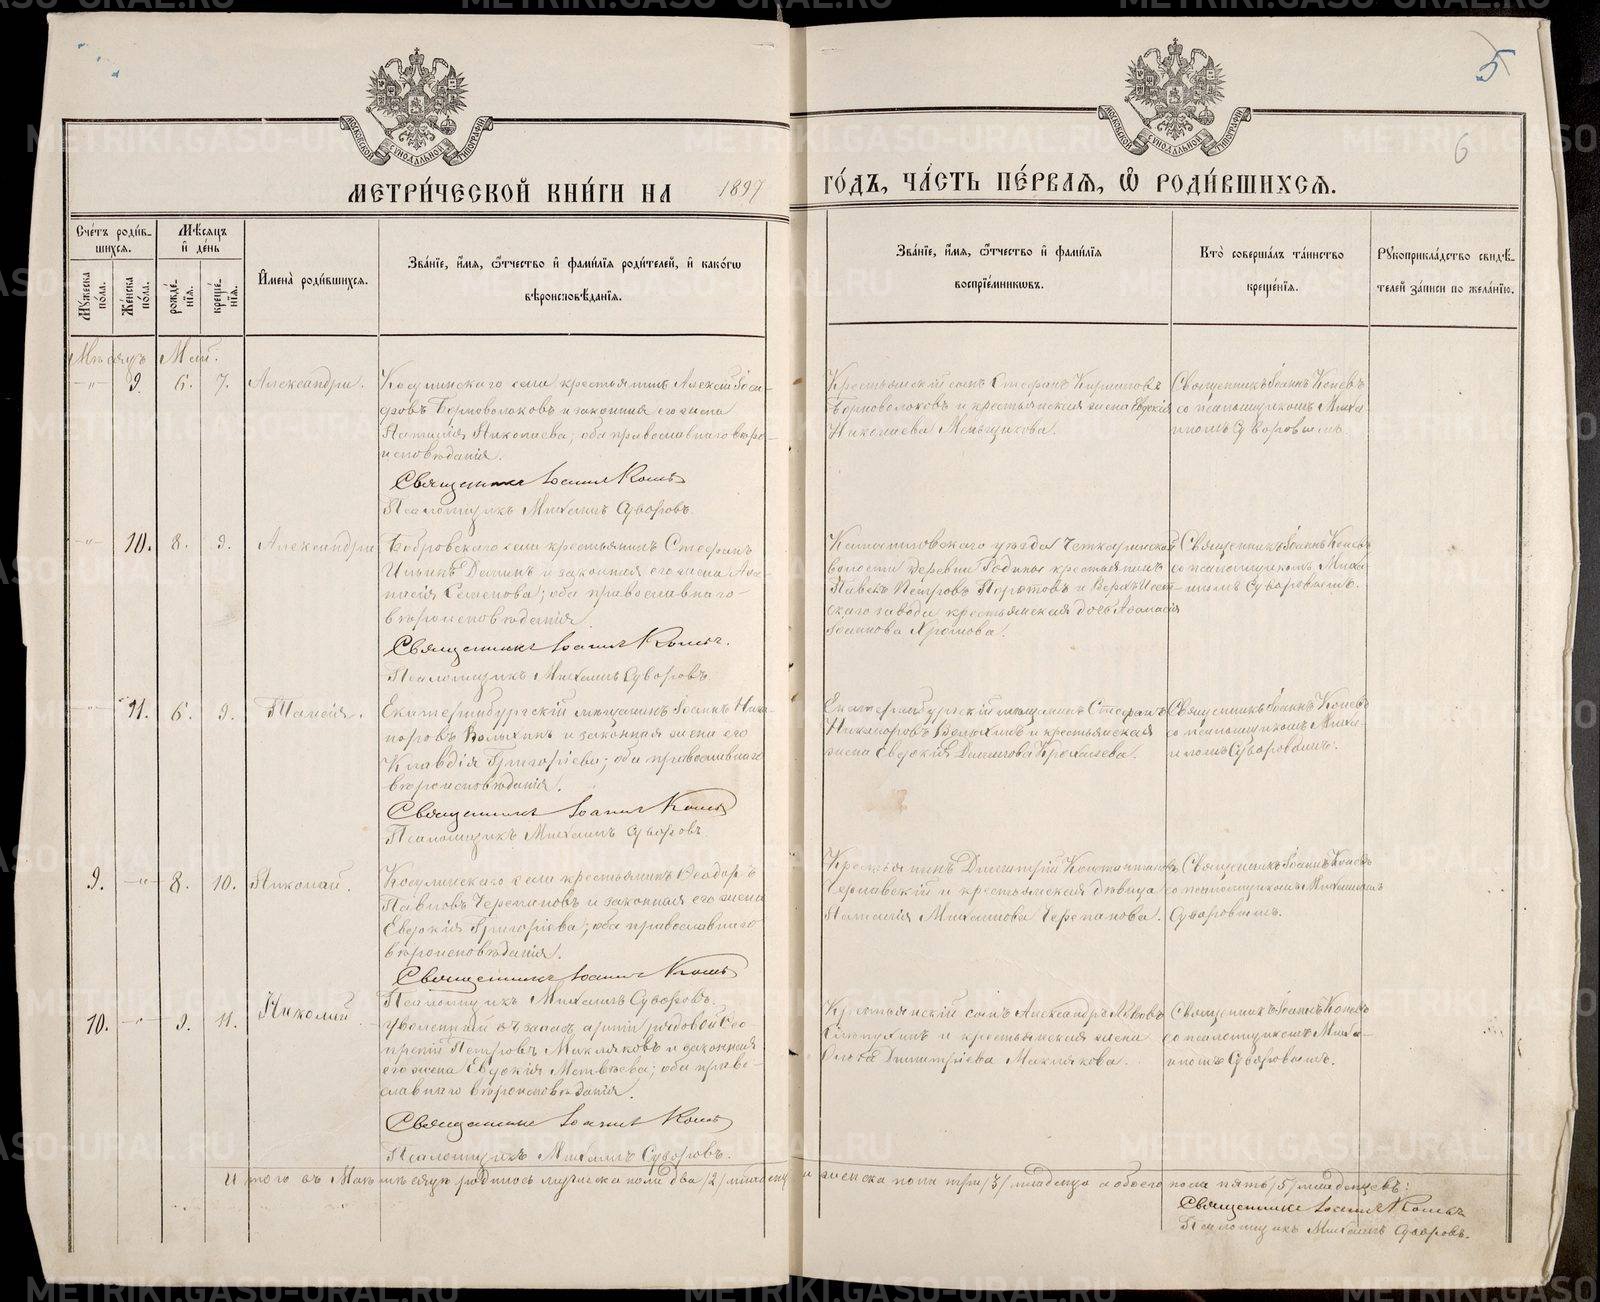 МОСКОВСКОЙ СѴНОДАЛЬНОЙ ТИПОГРАФІИ
МОСКОВСКОЙ СѴНОДАЛЬНОЙ ТИПОГРАФІИ
5
6
МЕТРИ́ЧЕСКОЙ КНИ́ГИ НА 1897
ГО́ДЪ, ЧА́СТЬ ПЕ́РВАЯ, Ѽ РОДИ́ВШИХСЯ.
Сче́тъ роди́в-
шихся.
Мѣ́сяцъ
и҆ де́нь
Му́жеска по́ла.
Же́нска по́ла.
рожде́нїя.
креще́нїя.
И҆мена̀ роди́вшихся.
Зва́нїе, и҆́мя, ѻ҆́тчество и҆ фами́лїя роди́телей, и҆ како́гѡ
вѣроисповѣ́данїя.
Зва́нїе, и҆́мя, ѻ҆́тчество и҆ фами́лїя
воспрїе́мниковъ.
Кто̀ соверша́лъ та́инство
креще́нїя.
Рꙋкоприкла́дство свидѣ́-
телей за́писи по жела́нїю.
Мѣсяцъ Май.
-"- 9. 6. 7. Александра.
Косулинскаго села крестьянинъ Алексій Іоси-
фовъ Черноволоковъ и законная его жена
Наталія Николаева; оба православнаго вѣро-
исповѣданія.
Священникъ Іоаннъ Коневъ
Псаломщикъ Михаилъ Суворовъ
Крестьянскій сынъ Стефанъ
и крестьянская жена Евдокія
Николаева Меньщикова.
Священникъ Іоаннъ Коневъ
со псаломщикомъ Миха-
иломъ Суворовымъ.
-"- 10. 8. 9. Александра
Бобровскаго села крестьянинъ Стефанъ
Ильинъ и законная его жена Ана-
стасія Семенова; оба православнаго
вѣроисповѣданія.
Священникъ Іоаннъ Коневъ.
Псаломщикъ Михаилъ Суворовъ.
Камышловскаго уѣзда Четкаринской
волости деревни крестьянинъ
Павелъ Петровъ и Верхъ-Исет-
скаго завода крестьянская дочь Аѳанасія
Іоаннова Хромова.
Священникъ Іоаннъ Коневъ
со псаломщикомъ Миха-
иломъ Суворовымъ.
-"- 11. 6. 9. Таисія.
Екатеринбургскій мѣщанинъ Іоаннъ Ника-
норовъ и законная жена его
Клавдія Григоріева; оба православнаго
вѣроисповѣданія.
Священникъ Іоаннъ Коневъ
Псаломщикъ Михаилъ Суворовъ
Екатеринбургскій мѣщанинъ Стефанъ
Никаноровъ и крестьянская
жена Евдокія
Священникъ Іоаннъ Коневъ
со псаломщикомъ Миха-
иломъ Суворовымъ.
9. -"- 8. 10. Николай.
Косулинскаго села крестьянинъ Ѳеодоръ
Павловъ Черепановъ и законная его жена
Евдокія Григоріева; оба православнаго
вѣроисповѣданія.
Священникъ Іоаннъ Коневъ
Псаломщикъ Михаилъ Суворовъ.
Крестьянинъ Димитрій Константиновъ
Чернавскій и крестьянская дѣвица
Наталія Михаилова Черепанова.
Священникъ Іоаннъ Коневъ
со псаломщикомъ Михаиломъ
Суворовымъ.
10. -"- 9. 11. Николай
Уволенный въ запасъ арміи рядовой Гео-
ргій Петровъ Макляковъ и законная
его жена Евдокія Матвѣева; оба право-
славнаго вѣроисповѣданія.
Священникъ Іоаннъ Коневъ
Псаломщикъ Михаилъ Суворовъ.
Крестьянскій сынъ Александръ
и крестьянская жена
Ольга Димитріева Маклякова.
Священникъ Іоаннъ Коневъ
со псаломщикомъ Миха-
иломъ Суворовымъ.
Итого въ Маѣ мѣсяцѣ родилось мужеска пола два /2/ младенца женска пола три /3/ младенца а обоего пола пять /5/ младенцевъ:
Священникъ Іоаннъ Коневъ
Псаломщикъ Михаилъ Суворовъ.
METRIKI.GASO-URAL.RU